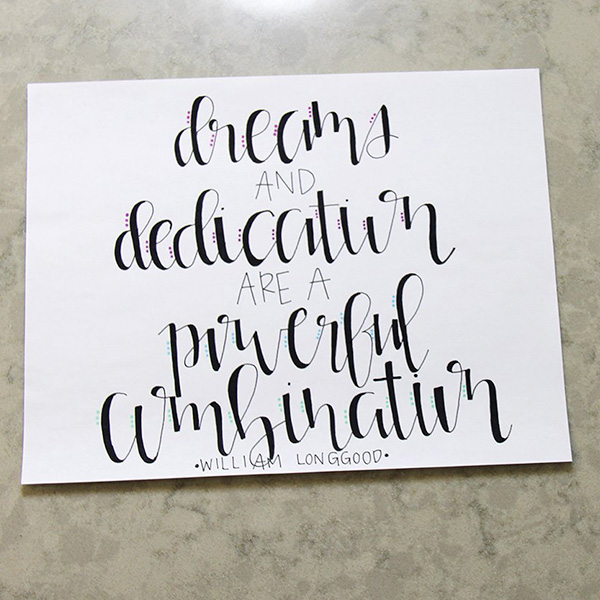 dreams
AND
dedication
ARE A
powerful
combination
•WILLIAM LONGGOOD•